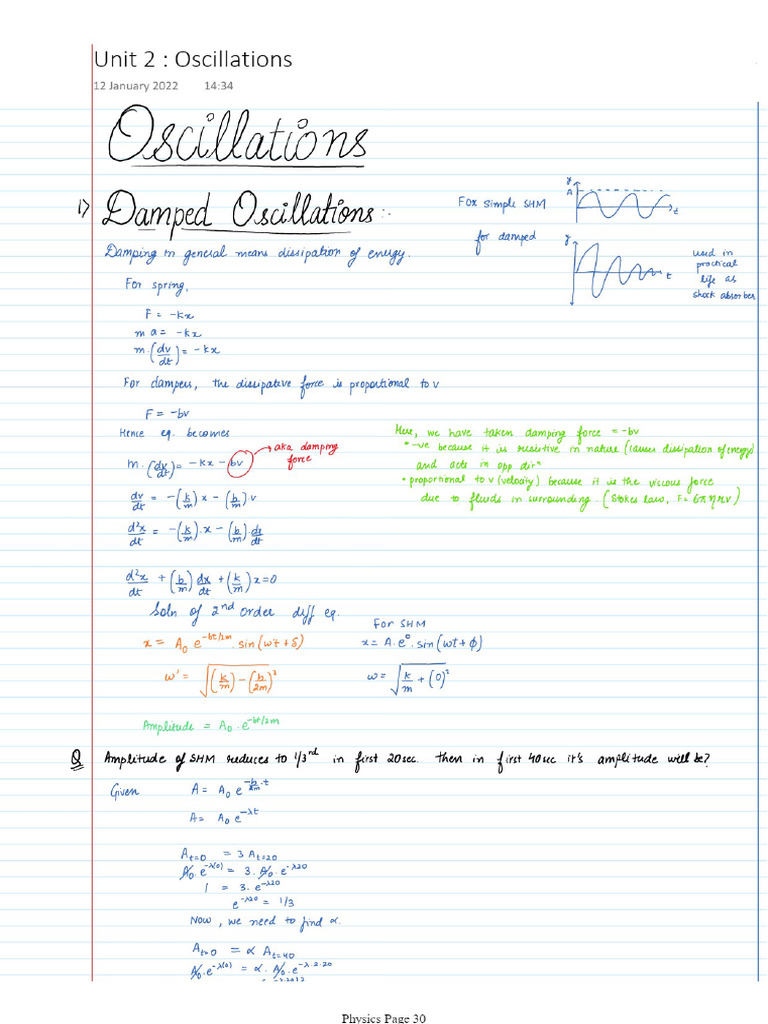 Unit 2 : Oscillations
12 January 2022 14:34
Oscillations
1) Damped Oscillations :-
For simple SHM
y
A
t
for damped
y
t
used in
practical
life as
shock absorber
Damping in general means dissipation of energy.
For spring,
F = -kx
m a = -kx
m.(dv/dt) = -kx
For dampers, the dissipative force is proportional to v
F = -bv
Hence eq. becomes
m.(dv/dt) = -kx - bv
→ aka damping
force
Here, we have taken damping force = -bv
* -ve because it is resistive in nature (causes dissipation of energy)
and acts in opp dirⁿ
• proportional to v (velocity) because it is the viscous force
due to fluids in surrounding. (Stokes law, F = 6πηrv)
dv/dt = -(k/m)x - (b/m).v
d²x/dt = -(k/m).x - (b/m).dx/dt
d²x/dt + (b/m) dx/dt + (k/m) x = 0
Soln of 2nd Order diff eq.
x = A₀ e^(-bt/2m) . sin(w't + δ)
w' = √((k/m) - (b/2m)²)
For SHM
x = A.e⁰ . sin(wt + ϕ)
w = √(k/m + (0)²)
Amplitude = A₀.e^(-bt/2m)
Q Amplitude of SHM reduces to 1/3rd in first 20sec. then in first 40sec it's amplitude will be?
Given A = A₀ e^(-b/2m .t)
A = A₀ e^(-λt)
A_(t=0) = 3 A_(t=20)
A₀.e^(-λ(0)) = 3.A₀.e^(-λ20)
1 = 3.e^(-λ20)
e^(-λ20) = 1/3
Now, we need to find α.
A_(t=0) = α A_(t=40)
A₀.e^(-λ(0)) = α.A₀.e^(-λ.2.20)
Physics Page 30